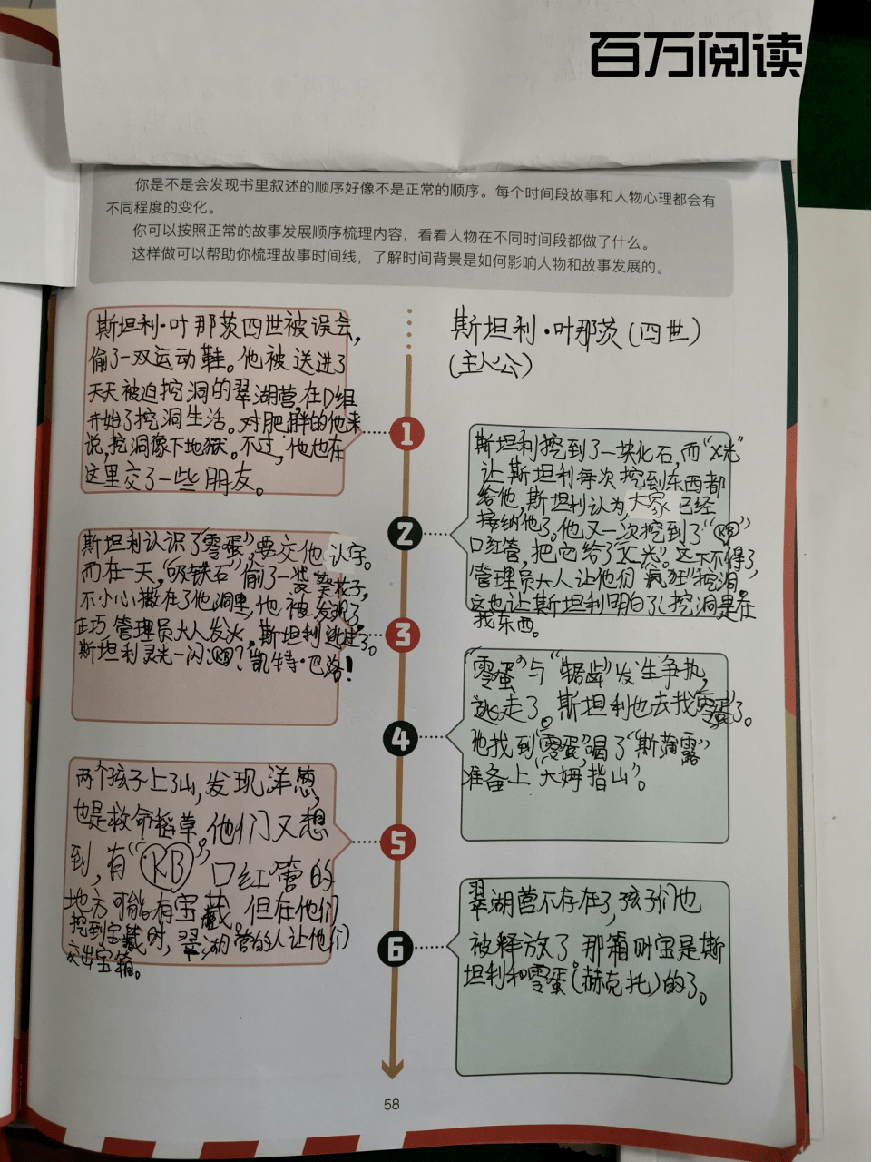 百万阅读
你是不是会发现书里叙述的顺序好像不是正常的顺序。每个时间段故事和人物心理都会有
不同程度的变化。
你可以按照正常的故事发展顺序梳理内容，看看人物在不同时间段都做了什么。
这样做可以帮助你梳理故事时间线，了解时间背景是如何影响人物和故事发展的。
斯坦利·叶那茨(四世)
(主人公)
斯坦利·叶那茨四世被误会，
偷了一双运动鞋。他被送进了
天天被迫挖洞的翠湖营，在D组
开始了挖洞生活。对肥胖的他来
说，挖洞像下地狱。不过，他也在
这里交了一些朋友。
1
斯坦利挖到了一块化石，而“X光”
让斯坦利每次挖到东西都
给他，斯坦利认为，大家已经
接纳他了。他又一次挖到了“KB”
口红管，把它给了“X光”。这下不得了，
管理员大人让他们“疯狂”挖洞，
这也让斯坦利明白了：挖洞是在
找东西。
2
斯坦利认识了“零蛋”，要交他认字。
而在一天，“吸铁石”偷了一袋葵花子，
不小心撒在了他洞里，他被发现了。
正巧，管理员大人发火，斯坦利逃过了。
斯坦利灵光一闪：KB？凯特·巴洛！
3
“零蛋”与“锯齿”发生争执，
逃走了。斯坦利也去找“零蛋”了。
他找到“零蛋”，喝了“斯蒲露”
准备上“大姆指山”。
4
两个孩子上了山，发现洋葱，
也是救命稻草。他们又想
到，有“KB”，口红管的
地方可能有宝藏。但在他们
挖到宝藏时，翠湖营的人让他们
交出宝箱。
5
翠湖营不存在了，孩子们也
被释放了。那箱财宝是斯
坦利和零蛋(赫克托)的了。
6
58